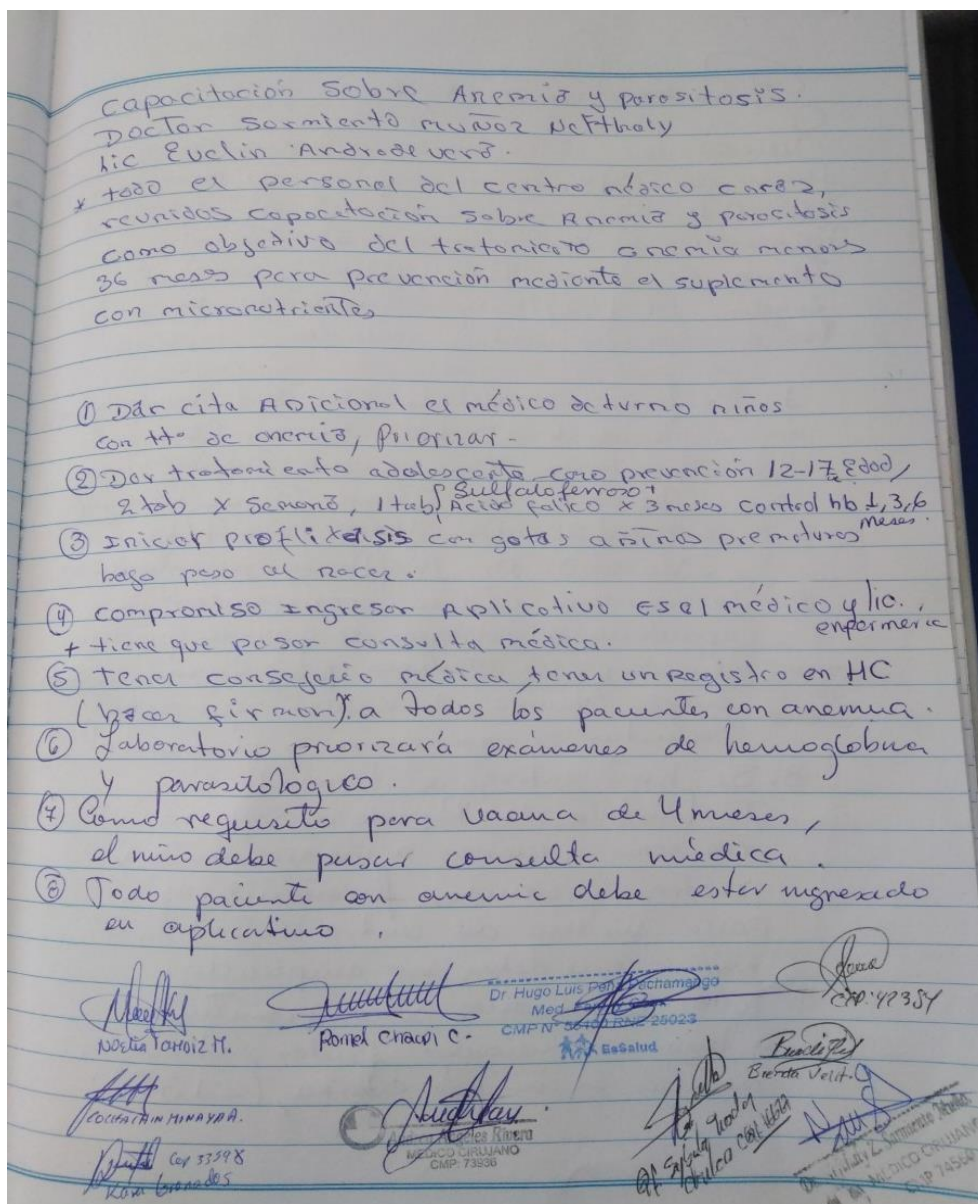 Capacitación Sobre Anemia y parasitosis.
Doctor Sarmiento muñoz Nefthaly
Lic Evelin Andrade vera.
* todo el personal del centro médico care2,
reunidos capacitación sobre Anemia y parocitosis
como objetivo del tratamiento anemia menors
36 meses para prevención mediante el suplemento
con micronutrientes
① Dar cita Adicional el médico de turno niños
con tto de anemia, Priorizar -
② Dar tratamiento adolescente como prevención 12-17 Edad,
2 tab x Semana, 1 tab Sulfatoferroso + Acido folico x 3 meses control hb 1, 3, 6 meses.
③ Inicar profilixasis con gotas a niños prematuros
bajo peso al nacer.
④ compromiso Ingresar Aplicativo Es el médico y lic. enfermeria
+ tiene que pasar consulta médica.
⑤ tener consejeria médica tener un Registro en HC
(hacer firmar) a todos los pacientes con anemia.
⑥ Laboratorio priorizará exámenes de hemoglobina
y parasitológico.
⑦ Como requisito para vacuna de 4 meses,
el niño debe pasar consulta médica.
⑧ Todo paciente con anemia debe estar ingresado
en aplicativo.
Dr. Hugo Luis Peña
Med.
CMP N° RNE 25023
EsSalud
42384
Noelia M.
Romel Chacpi C.
Brenda Velit.
Rivera
MEDICO CIRUJANO
CMP: 73936
Q.f.
Cep 33598
Karen Granados
Sarmiento
MEDICO CIRUJANO
CMP 74560